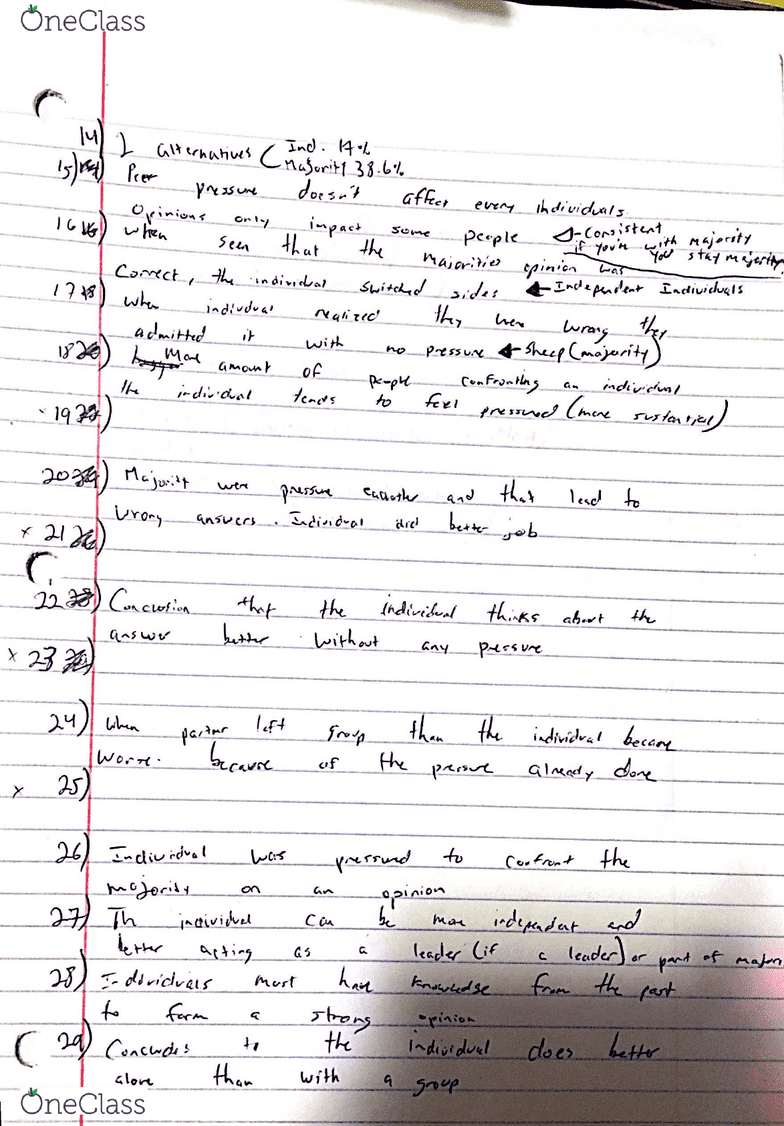 OneClass
14) 2 alternatives ( Ind. 14%
Majority 38.6%
15) Peer pressure doesn't affect every individuals
16) Opinions only impact some people ◁-Consistent
if you're with majority
you stay majority
when seen that the majorities opinion was
Correct, the individual switched sides ← Independent Individuals
17) when indivdual realized they were wrong they
admitted it with no pressure ← sheep (majority)
18) More amount of people confronting an individual
the individual tends to feel pressured (more sustential)
19)
20) Majority were pressure eachother and that lead to
wrong answers. Individual did better job
x 21)
22) Conclusion that the individual thinks about the
answer better without any pressure
x 23)
24) when partner left group than the individual became
worse. because of the pressure already done
x 25)
26) Individual was pressured to confront the
majority on an opinion
27) Th individual can be more independent and
better acting as a leader (if a leader) or part of majori
28) Individuals must have knowledge from the past
to form a strong opinion
29) Concludes to the individual does better
alone than with a group
OneClass